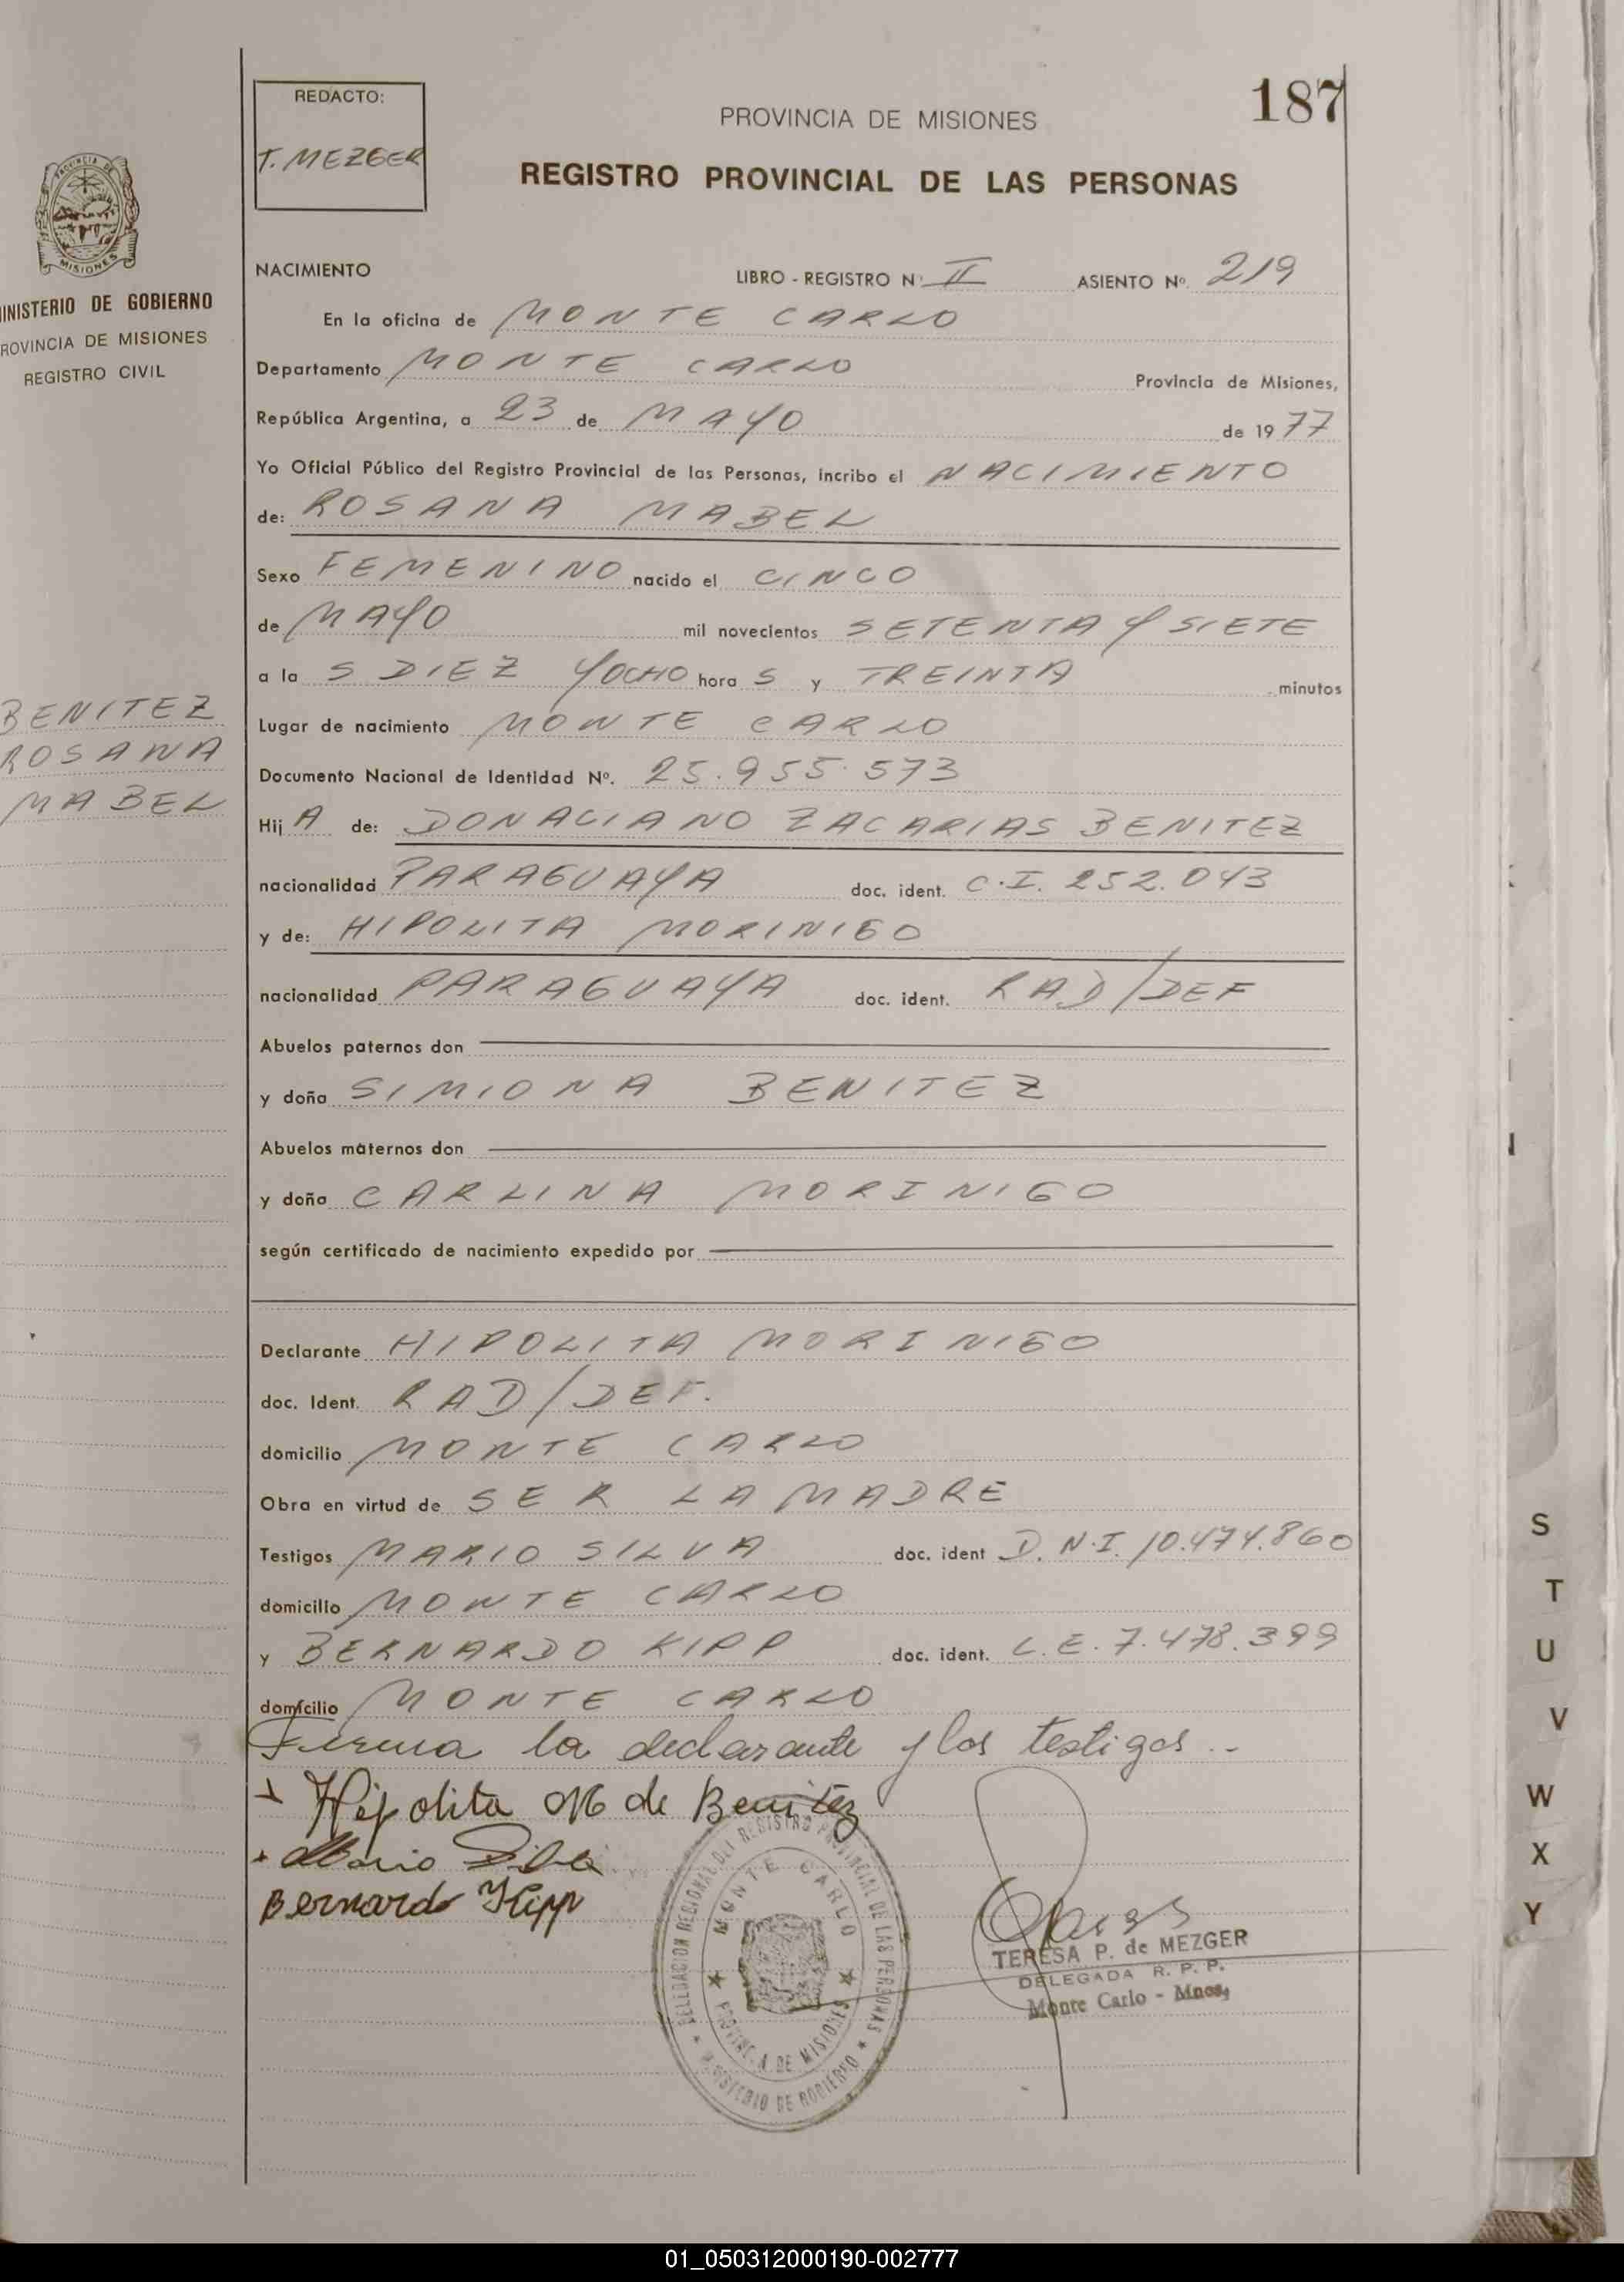 187
REDACTO:
T. MEZGER
PROVINCIA DE MISIONES
REGISTRO PROVINCIAL DE LAS PERSONAS
MISIONES
INISTERIO DE GOBIERNO
ROVINCIA DE MISIONES
REGISTRO CIVIL
BENITEZ
ROSANA
MABEL
NACIMIENTO LIBRO - REGISTRO Nº II ASIENTO Nº 219
En la oficina de MONTE CARLO
Departamento MONTE CARLO Provincia de Misiones,
República Argentina, a 23 de MAYO de 1977
Yo Oficial Público del Registro Provincial de las Personas, incribo el NACIMIENTO
de: ROSANA MABEL
Sexo FEMENINO nacido el CINCO
de MAYO mil novecientos SETENTA Y SIETE
a la S DIEZ YOCHO hora S y TREINTA minutos
Lugar de nacimiento MONTE CARLO
Documento Nacional de Identidad Nº. 25.955.573
Hij A de: DONACIANO ZACARIAS BENITEZ
nacionalidad PARAGUAYA doc. ident. C.I. 252.043
y de: HIPOLITA MORINIGO
nacionalidad PARAGUAYA doc. ident. RAD/DEF
Abuelos paternos don
y doña SIMIONA BENITEZ
Abuelos maternos don
y doña CARLINA MORINIGO
según certificado de nacimiento expedido por
Declarante HIPOLITA MORINIGO
doc. Ident. RAD/DEF.
domicilio MONTE CARLO
Obra en virtud de SER LA MADRE
Testigos MARIO SILVA doc. ident D.N.I. 10.474.860
domicilio MONTE CARLO
y BERNARDO KIPP doc. ident. L.E. 7.478.399
domicilio MONTE CARLO
Firma la declarante y los testigos ..-
Hipolita M de Benitez
Mario Silva
Bernardo Kipp
DELEGACION REGIONAL DEL REGISTRO PROVINCIAL DE LAS PERSONAS
MINISTERIO DE GOBIERNO
MONTE CARLO
PROVINCIA DE MISIONES
TERESA P. de MEZGER
DELEGADA R. P. P.
Monte Carlo - Mnes.
S
T
U
V
W
X
Y
01_050312000190-002777